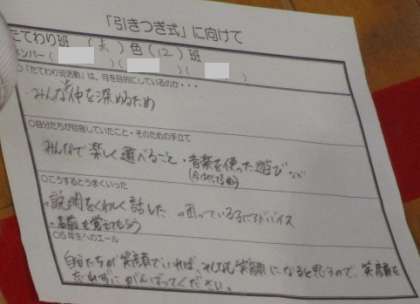 「引きつぎ式」に向けて
たてわり班 ( 赤 ) 色 (12) 班
メンバー ( )( )( )
○「たてわり班活動」は、何を目的にしているのか・・・
・みんな仲を深めるため
○自分たちが目指していたこと・そのための手立て
みんなで楽しく遊べること・音楽を使った遊び
○こうするとうまくいった
・説明をくわしく話した ・困っている子にアドバイス
・名前を覚えてもらう
○5年生へのエール
自分たちが笑顔でいれば、みんなも笑顔になると思うので、笑顔を
たやさずにがんばってください。